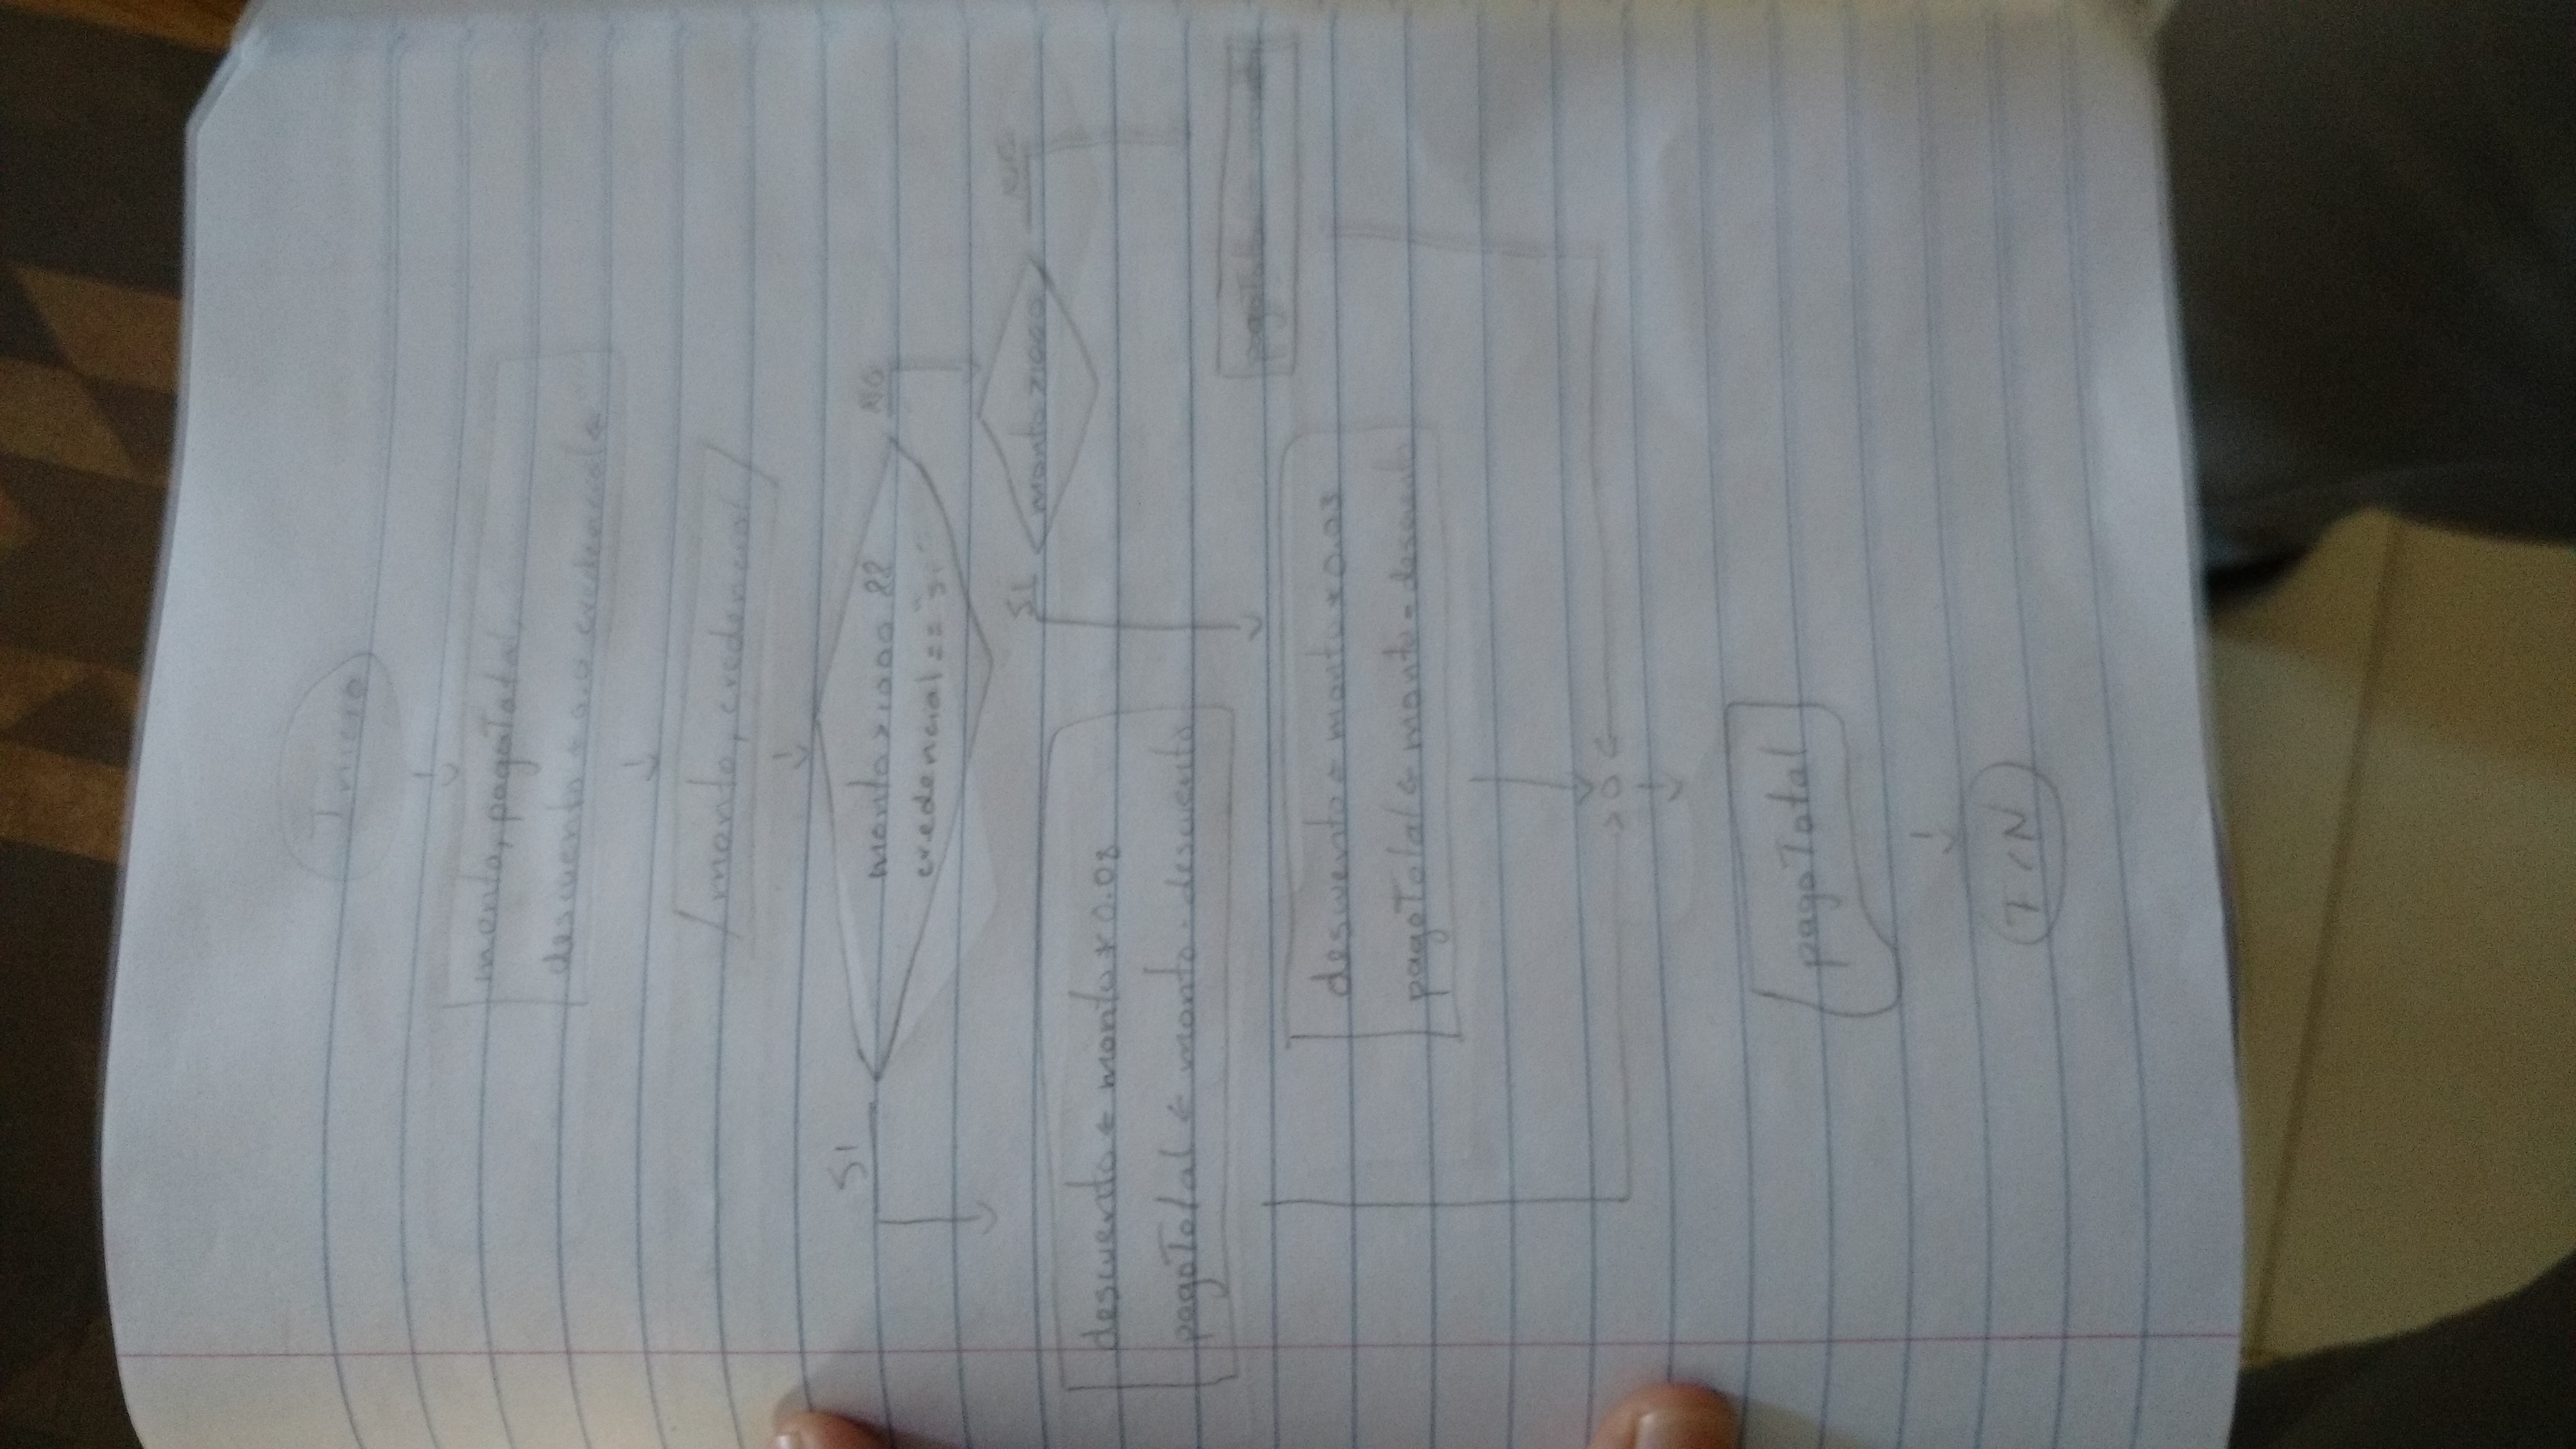 Inicio
monto, pagoTotal,
descuento ← 0.0 credencial ← " "
monto, credencial
monto > 1000 &&
credencial == "si"
SI
NO
monto > 1000
SI
NO
descuento ← monto * 0.08
pagoTotal ← monto - descuento
pagoTotal ← monto
descuento ← monto * 0.03
pagoTotal ← monto - descuento
pagoTotal
FIN